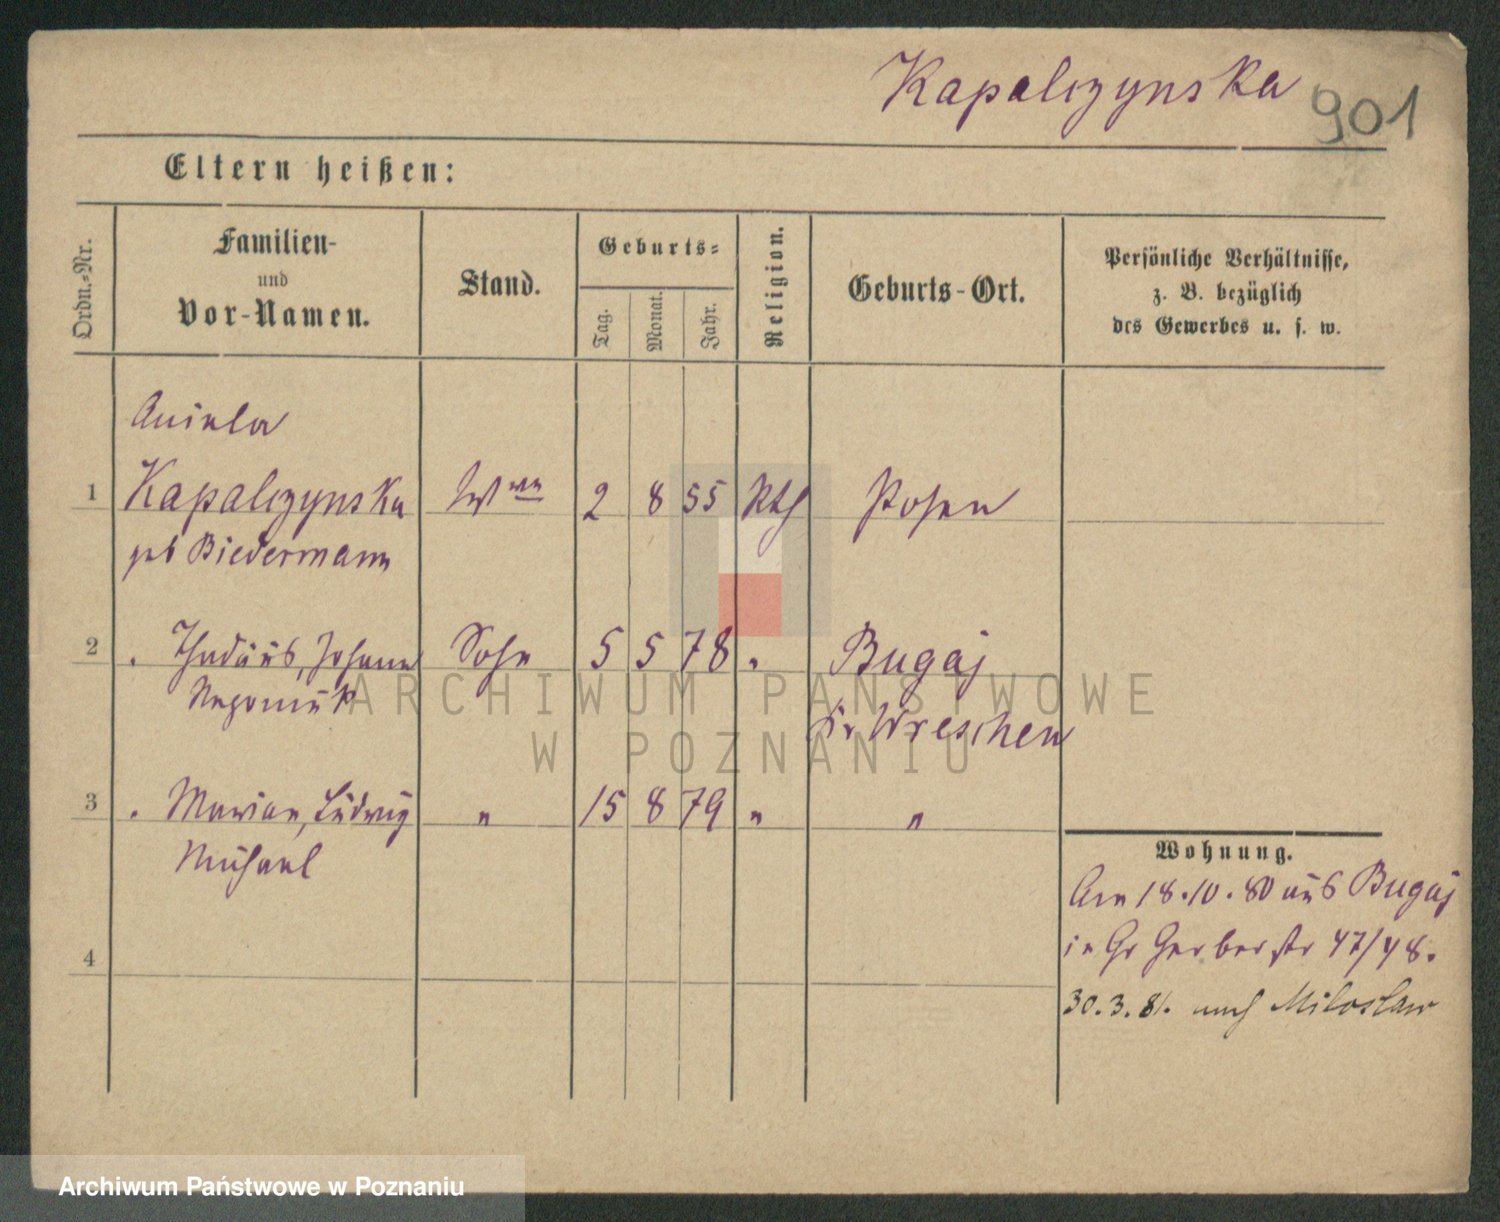 Kapalczynska
901
Eltern heißen:
Ordn.-Nr.
Familien- und Vor-Namen.
Stand.
Geburts-
Tag.
Monat.
Jahr.
Religion.
Geburts-Ort.
Persönliche Verhältnisse,
z. B. bezüglich
des Gewerbes u. s. w.
Aniela
1 Kapalczynska Wwe 2 8 55 Kth Posen
geb Biedermann
2 " Thadäus, Johann Sohn 5 5 78 " Bugaj
Nepomuk Kr Wreschen
3 " Marian, Ludwig " 15 8 79 " "
Michael
4
Wohnung.
Am 18.10.80 aus Bugaj
in Gr Gerberstr 47/48.
30.3.81. nach Miloslaw
ARCHIWUM PAŃSTWOWE
W POZNANIU
Archiwum Państwowe w Poznaniu